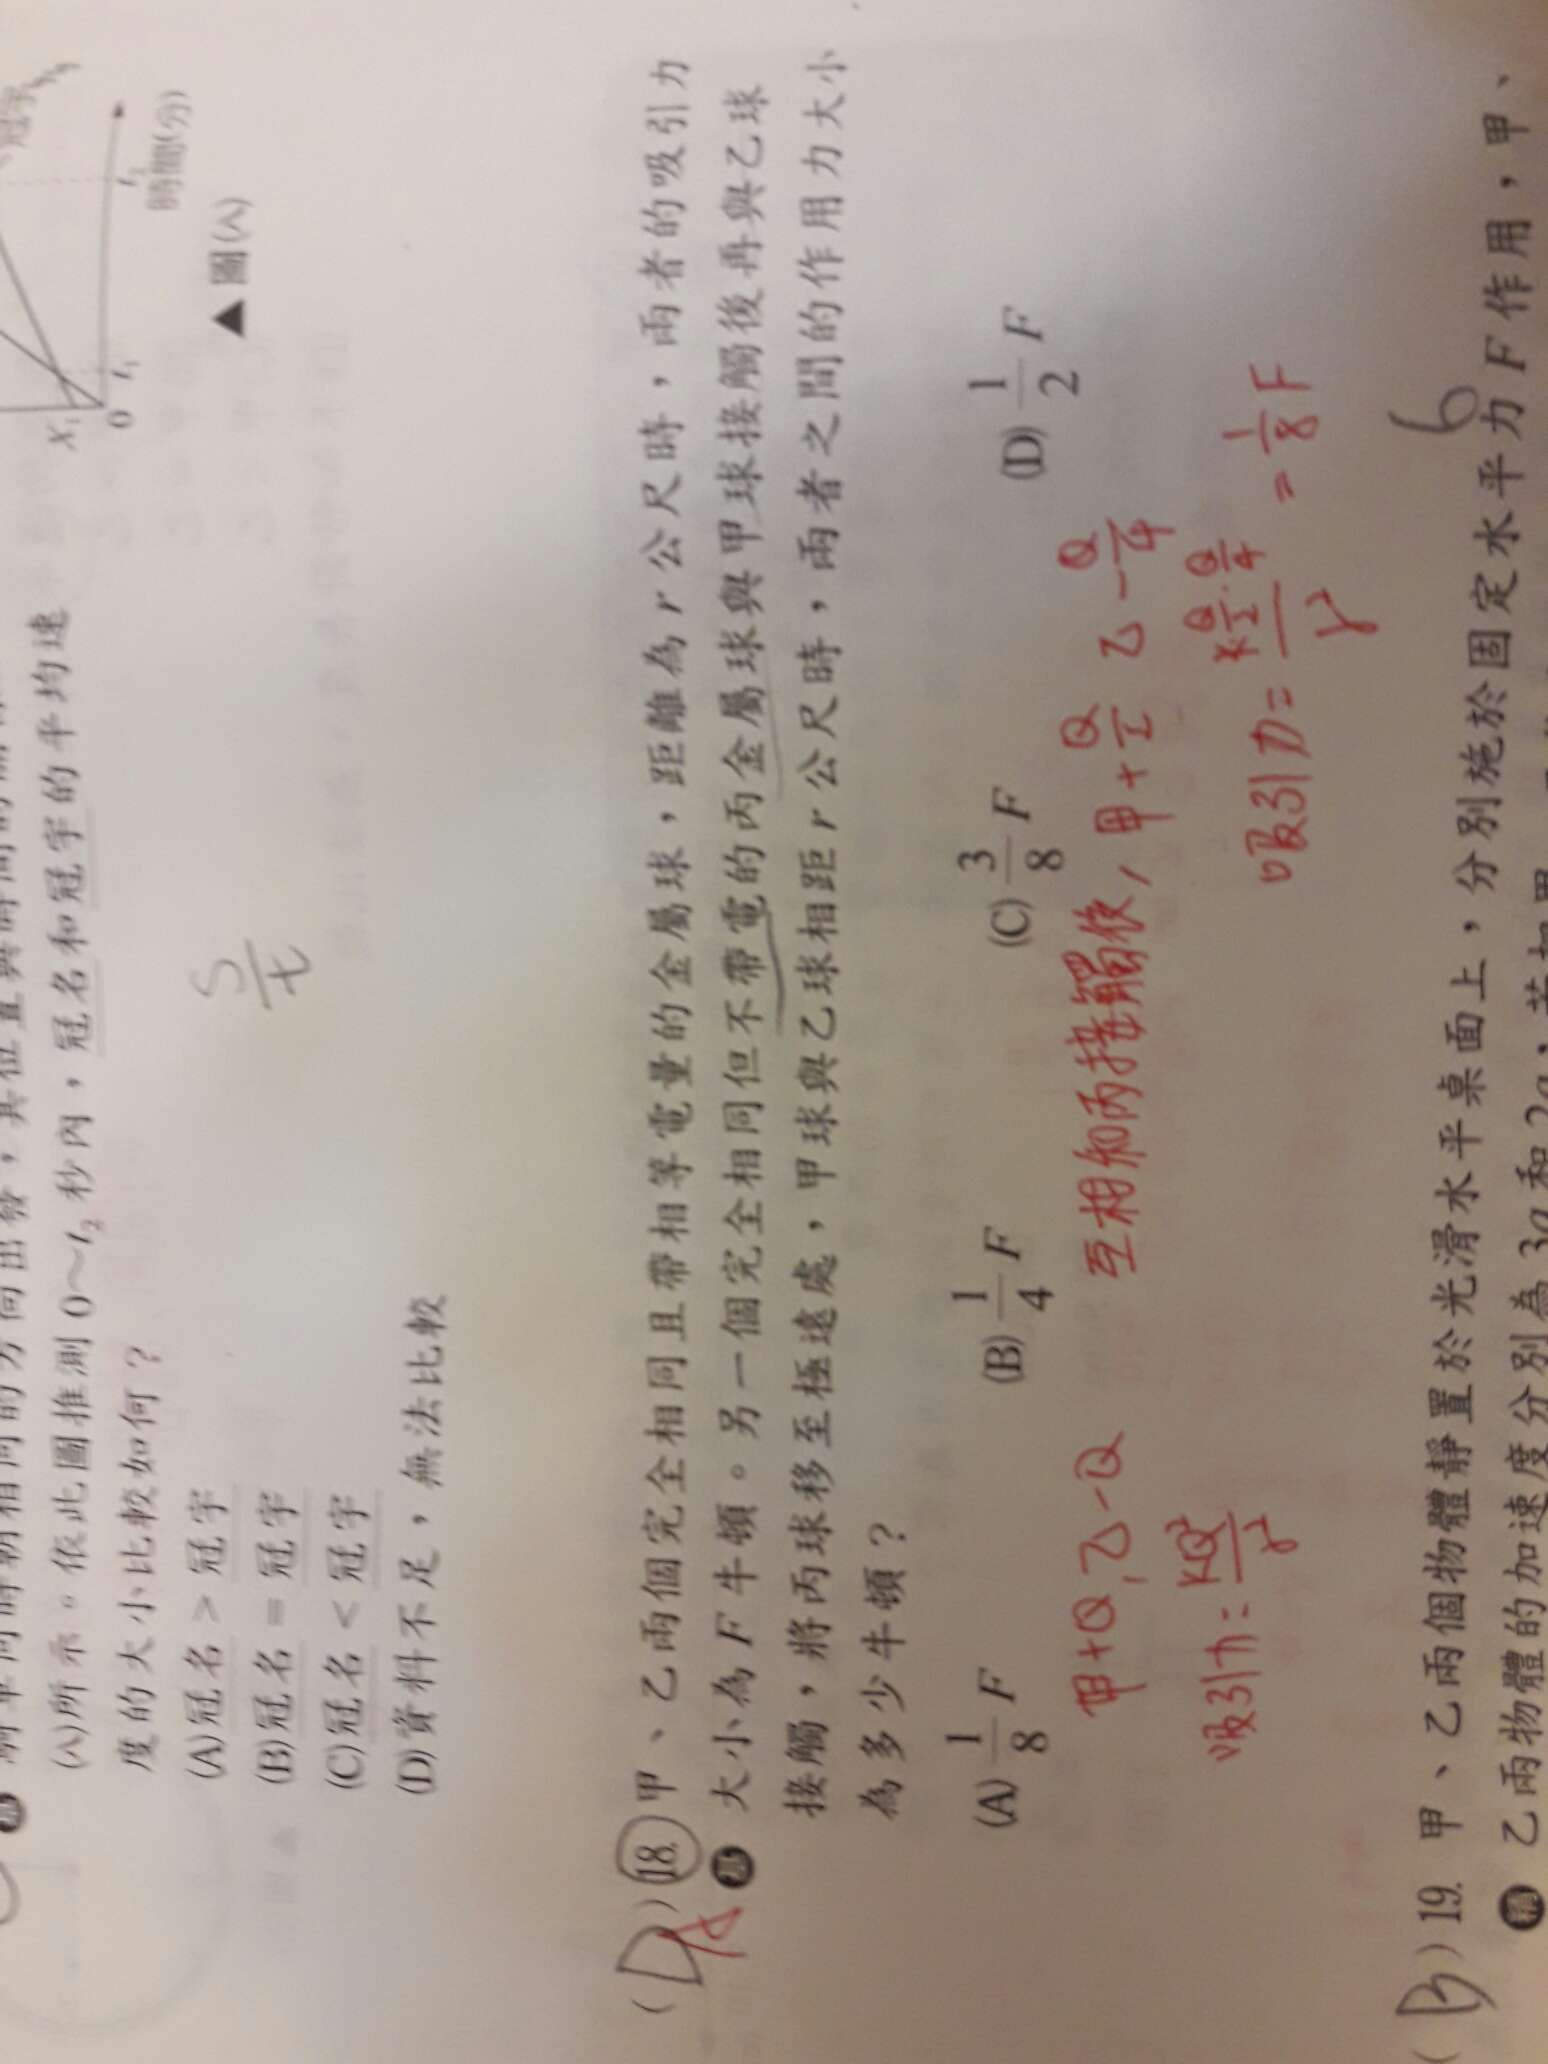 冠宇
時間(分)
X₁
0
t₁
t₂
▲ 圖(八)
(八)所示。依此圖推測 0～t₂ 秒內，冠名和冠宇的平均速
度的大小比較如何？
(A)冠名 > 冠宇
(B)冠名 = 冠宇
(C)冠名 < 冠宇
(D)資料不足，無法比較
S/t
(D) A 18. 甲、乙兩個完全相同且帶相等電量的金屬球，距離為 r 公尺時，兩者的吸引力
大小為 F 牛頓。另一個完全相同但不帶電的丙金屬球與甲球接觸後再與乙球
接觸，將丙球移至極遠處，甲球與乙球相距 r 公尺時，兩者之間的作用力大小
為多少牛頓？
(A) 1/8 F (B) 1/4 F (C) 3/8 F (D) 1/2 F
甲+Q, 乙-Q 互相和丙接觸後, 甲+Q/2 乙-Q/4
吸引力=KQ²/r² 吸引力=K Q/2·Q/4/r² = 1/8 F
6
(B) 19. 甲、乙兩個物體靜置於光滑水平桌面上，分別施於固定水平力 F 作用，甲、
乙兩物體的加速度分別為 3a 和 2a，若把甲